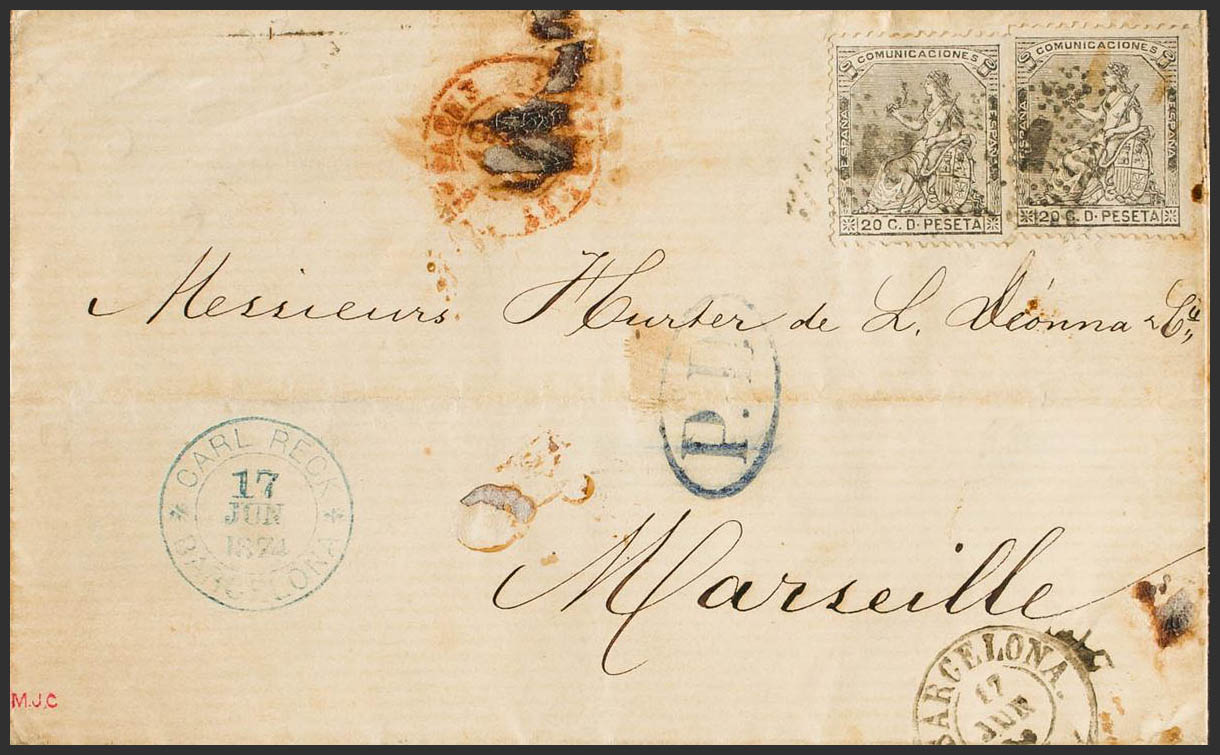 COMUNICACIONES
ESPAÑA ESPAÑA
20 C. D. PESETA
COMUNICACIONES
ESPAÑA ESPAÑA
20 C. D. PESETA
Messieurs Hurter de L. Déonna & Cie
P.D.
CARL BECK
17
JUN
1874
BARCELONA
Marseille
BARCELONA.
17
JUN
M.J.C